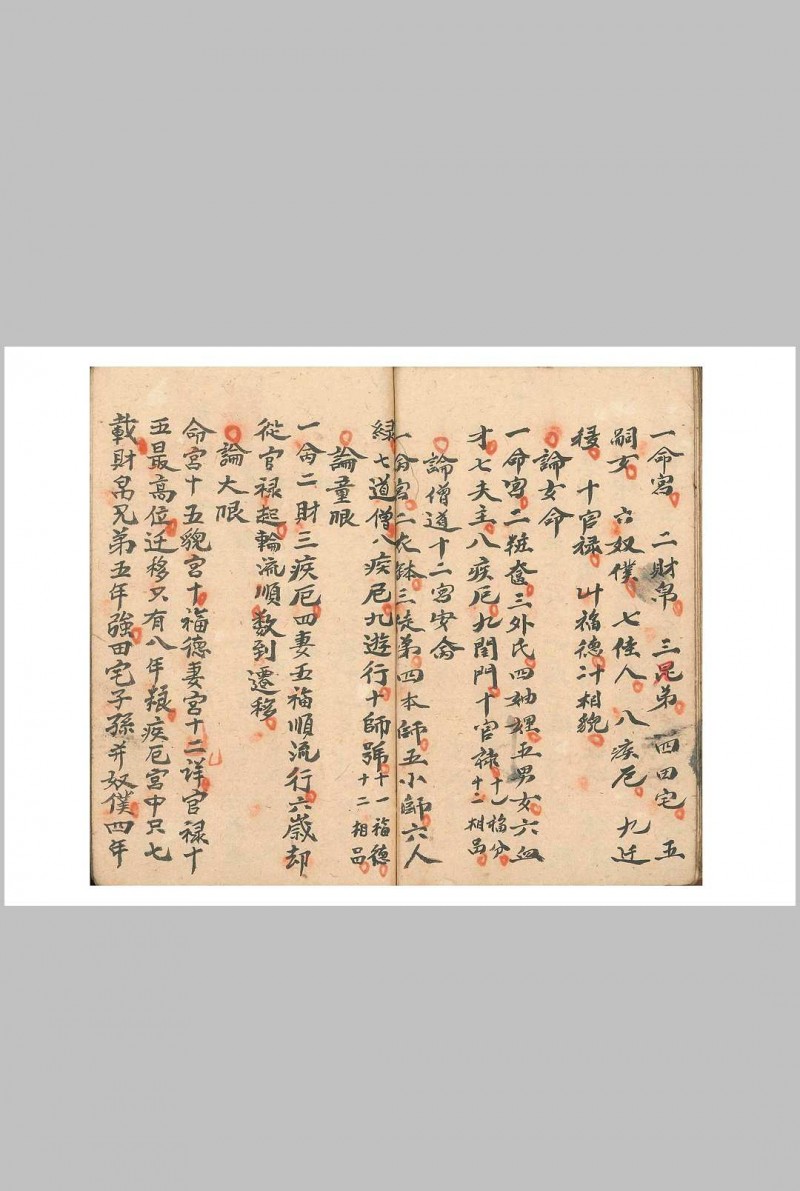 一命宮 二財帛 三昆弟 四田宅 五
嗣女 六奴僕 七佳人 八疾厄 九迁
移 十官禄 十一福德 十二相貌
論女命
一命宮二粧奩三外氏四妯娌五男女六血
才七夫主八疾厄九閨門十官祿十一福分十二相品
論僧道十二宮安命
一命宮二衣鉢三徒弟四本師五小師六人
緣七道僧八疾厄九遊行十師號十一福德十二相品
論童限
一命二財三疾厄四妻五福順流行六歲却
從官禄起輪流順数到遷移
論大限
命宮十五貌宮十福德妻宮十二詳官禄十
五最高位迁移只有八年粮疾厄宮中只七
載財帛兄弟五年強田宅子孫并奴僕四年